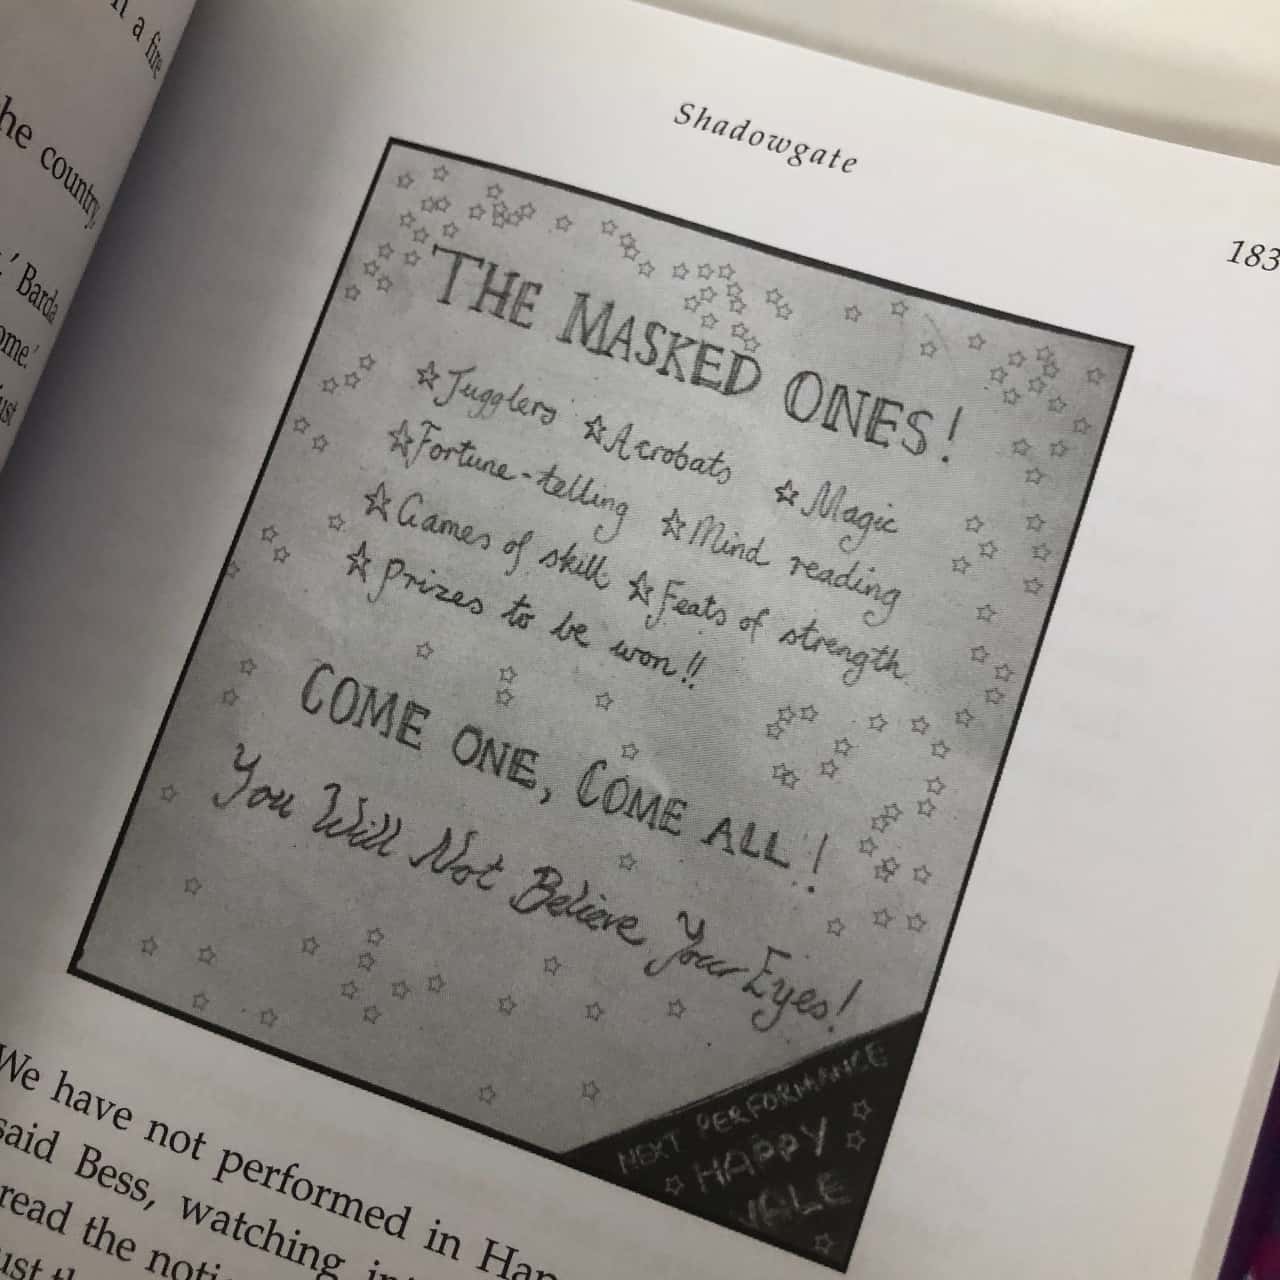 a fire
he country,
,' Barda
ome.'
ust
Shadowgate
183
THE MASKED ONES!
☆Jugglers ☆Acrobats ☆Magic
☆Fortune-telling ☆Mind reading
☆Games of skill ☆Feats of strength
☆Prizes to be won!!
COME ONE, COME ALL!
You Will Not Believe Your Eyes!
NEXT PERFORMANCE
☆ HAPPY ☆
VALE
We have not performed in Hap
said Bess, watching
read the noti
ust